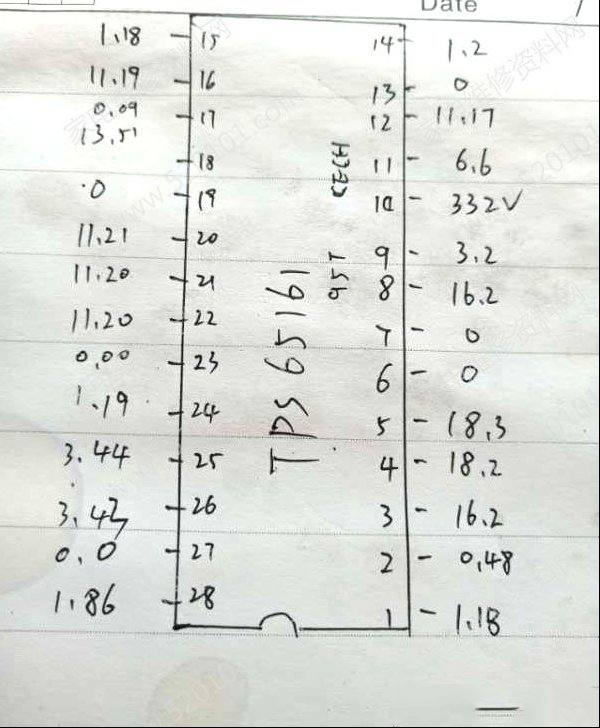 Date /
1.18 - 15 14 - 1.2
11.19 - 16 13 - 0
0.09
13.51 - 17 12 - 11.17
- 18 11 - 6.6
.0 - 19 10 - 332V
11.21 - 20 9 - 3.2
11.20 - 21 8 - 16.2
11.20 - 22 7 - 0
0.00 - 23 6 - 0
1.19 - 24 5 - 18.3
3.44 - 25 4 - 18.2
3.42 - 26 3 - 16.2
0.0 - 27 2 - 0.48
1.86 - 28 1 - 1.18
TPS 65161
95T CECH